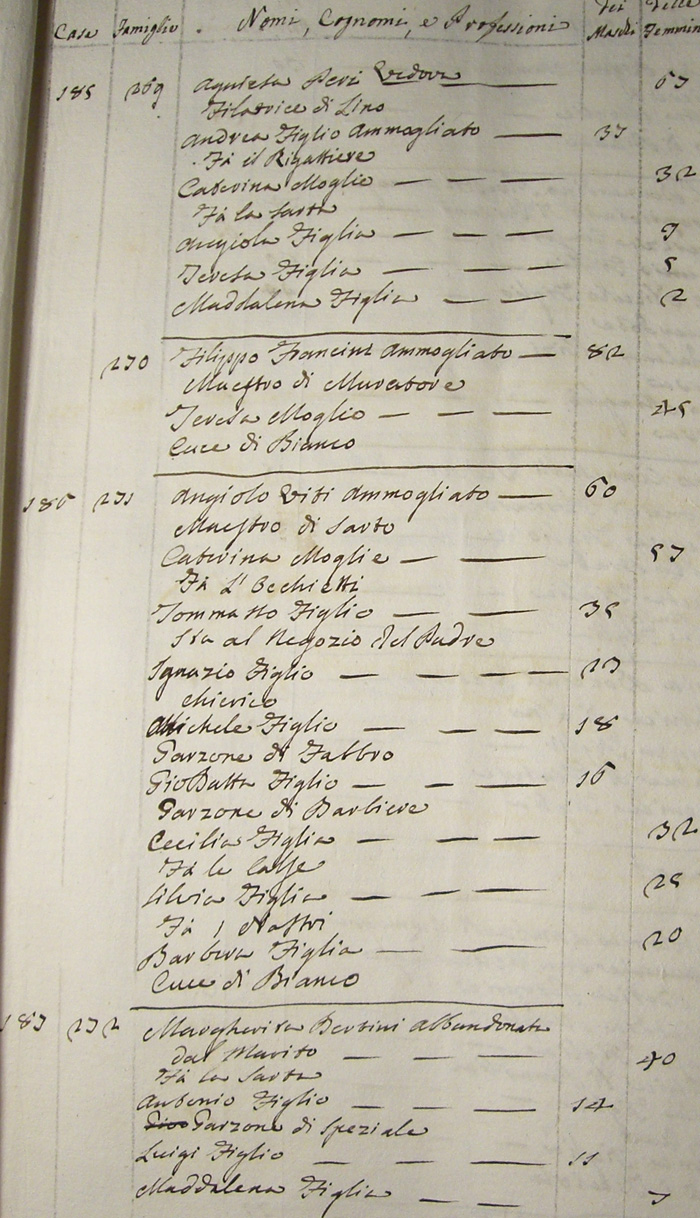 Case Famiglie. Nomi, Cognomi, e Professioni dei Maschi delle Femmin
185 269 Agniesa Peri Vedova — 67
Filatrice di Lino
Andrea Figlio Ammogliato — 37
Fà il Rigattiere
Caterina Moglie — — — 32
Fà la Sarta
Angiola Figlia — — — 9
Teresa Figlia — — — 5
Maddalena Figlia — — 2
270 Filippo Francini Ammogliato — 82
Maestro di Muratore
Teresa Moglie — — — 45
Cuce di Bianco
186 271 Angiolo Viti Ammogliato — 60
Maestro di Sarto
Caterina Moglie — — 57
Fà L'Occhietti
Tommasso Figlio — — 35
Sta al Negozio del Padre
Ignazio Figlio — — — 23
Chierico
Michele Figlio — — — 18
Garzone di Fabbro
GioBatta Figlio — — — 16
Garzone di Barbiere
Cecilia Figlia — — — 32
Fà le Calse
Silvia Figlia — — — 25
Fà i Nastri
Barbera Figlia — — 20
Cuce di Bianco
187 272 Margherita Bertini Abbandonata
dal Marito — — — 40
Fà la Sarta
Antonio Figlio — — — 14
Garzone di Speziale
Luigi Figlio — — — 11
Maddalena Figlia — — 7